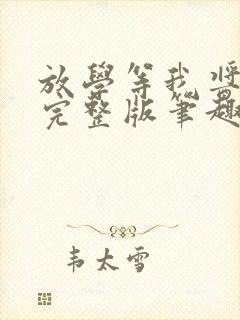 放學等我將
完整版筆趣
韦太雪